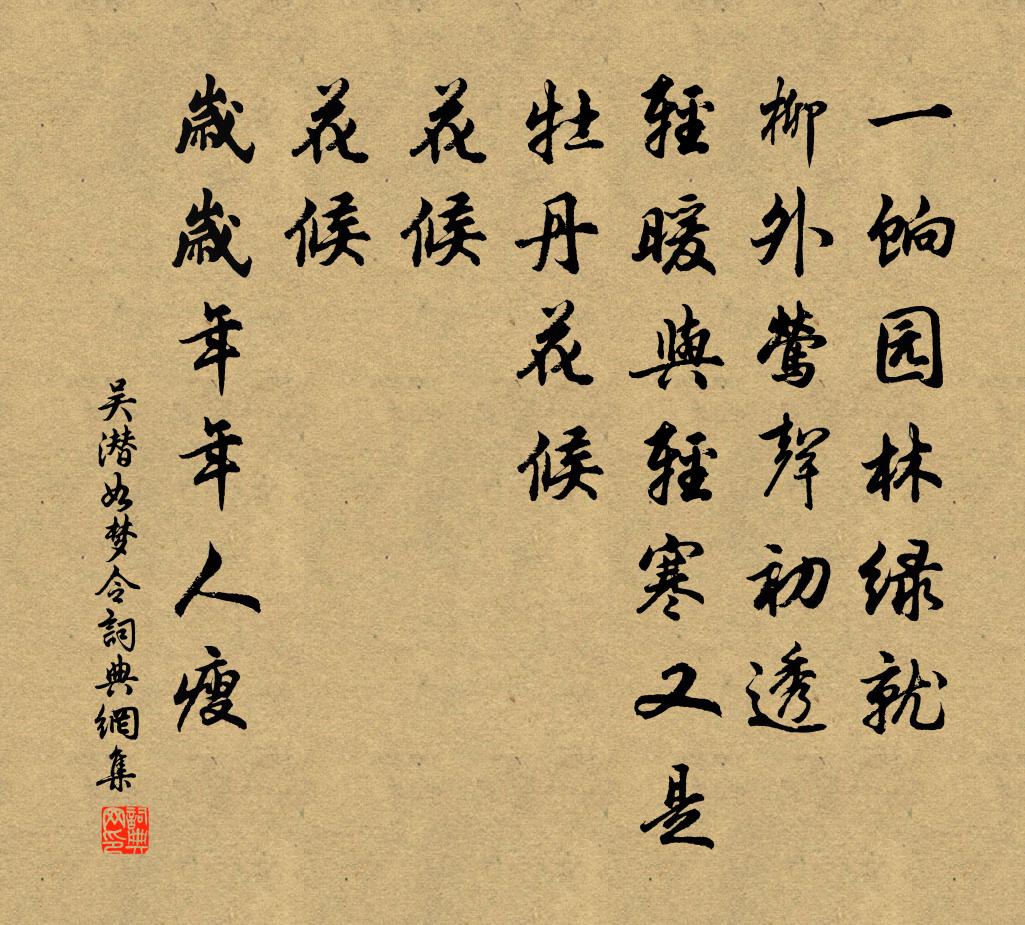 一饷园林绿就
柳外莺聲初透
輕暖與輕寒又是
牡丹花候
花候
花候
歲歲年年人瘦
吴潜如梦令詞典網集
詞典网印